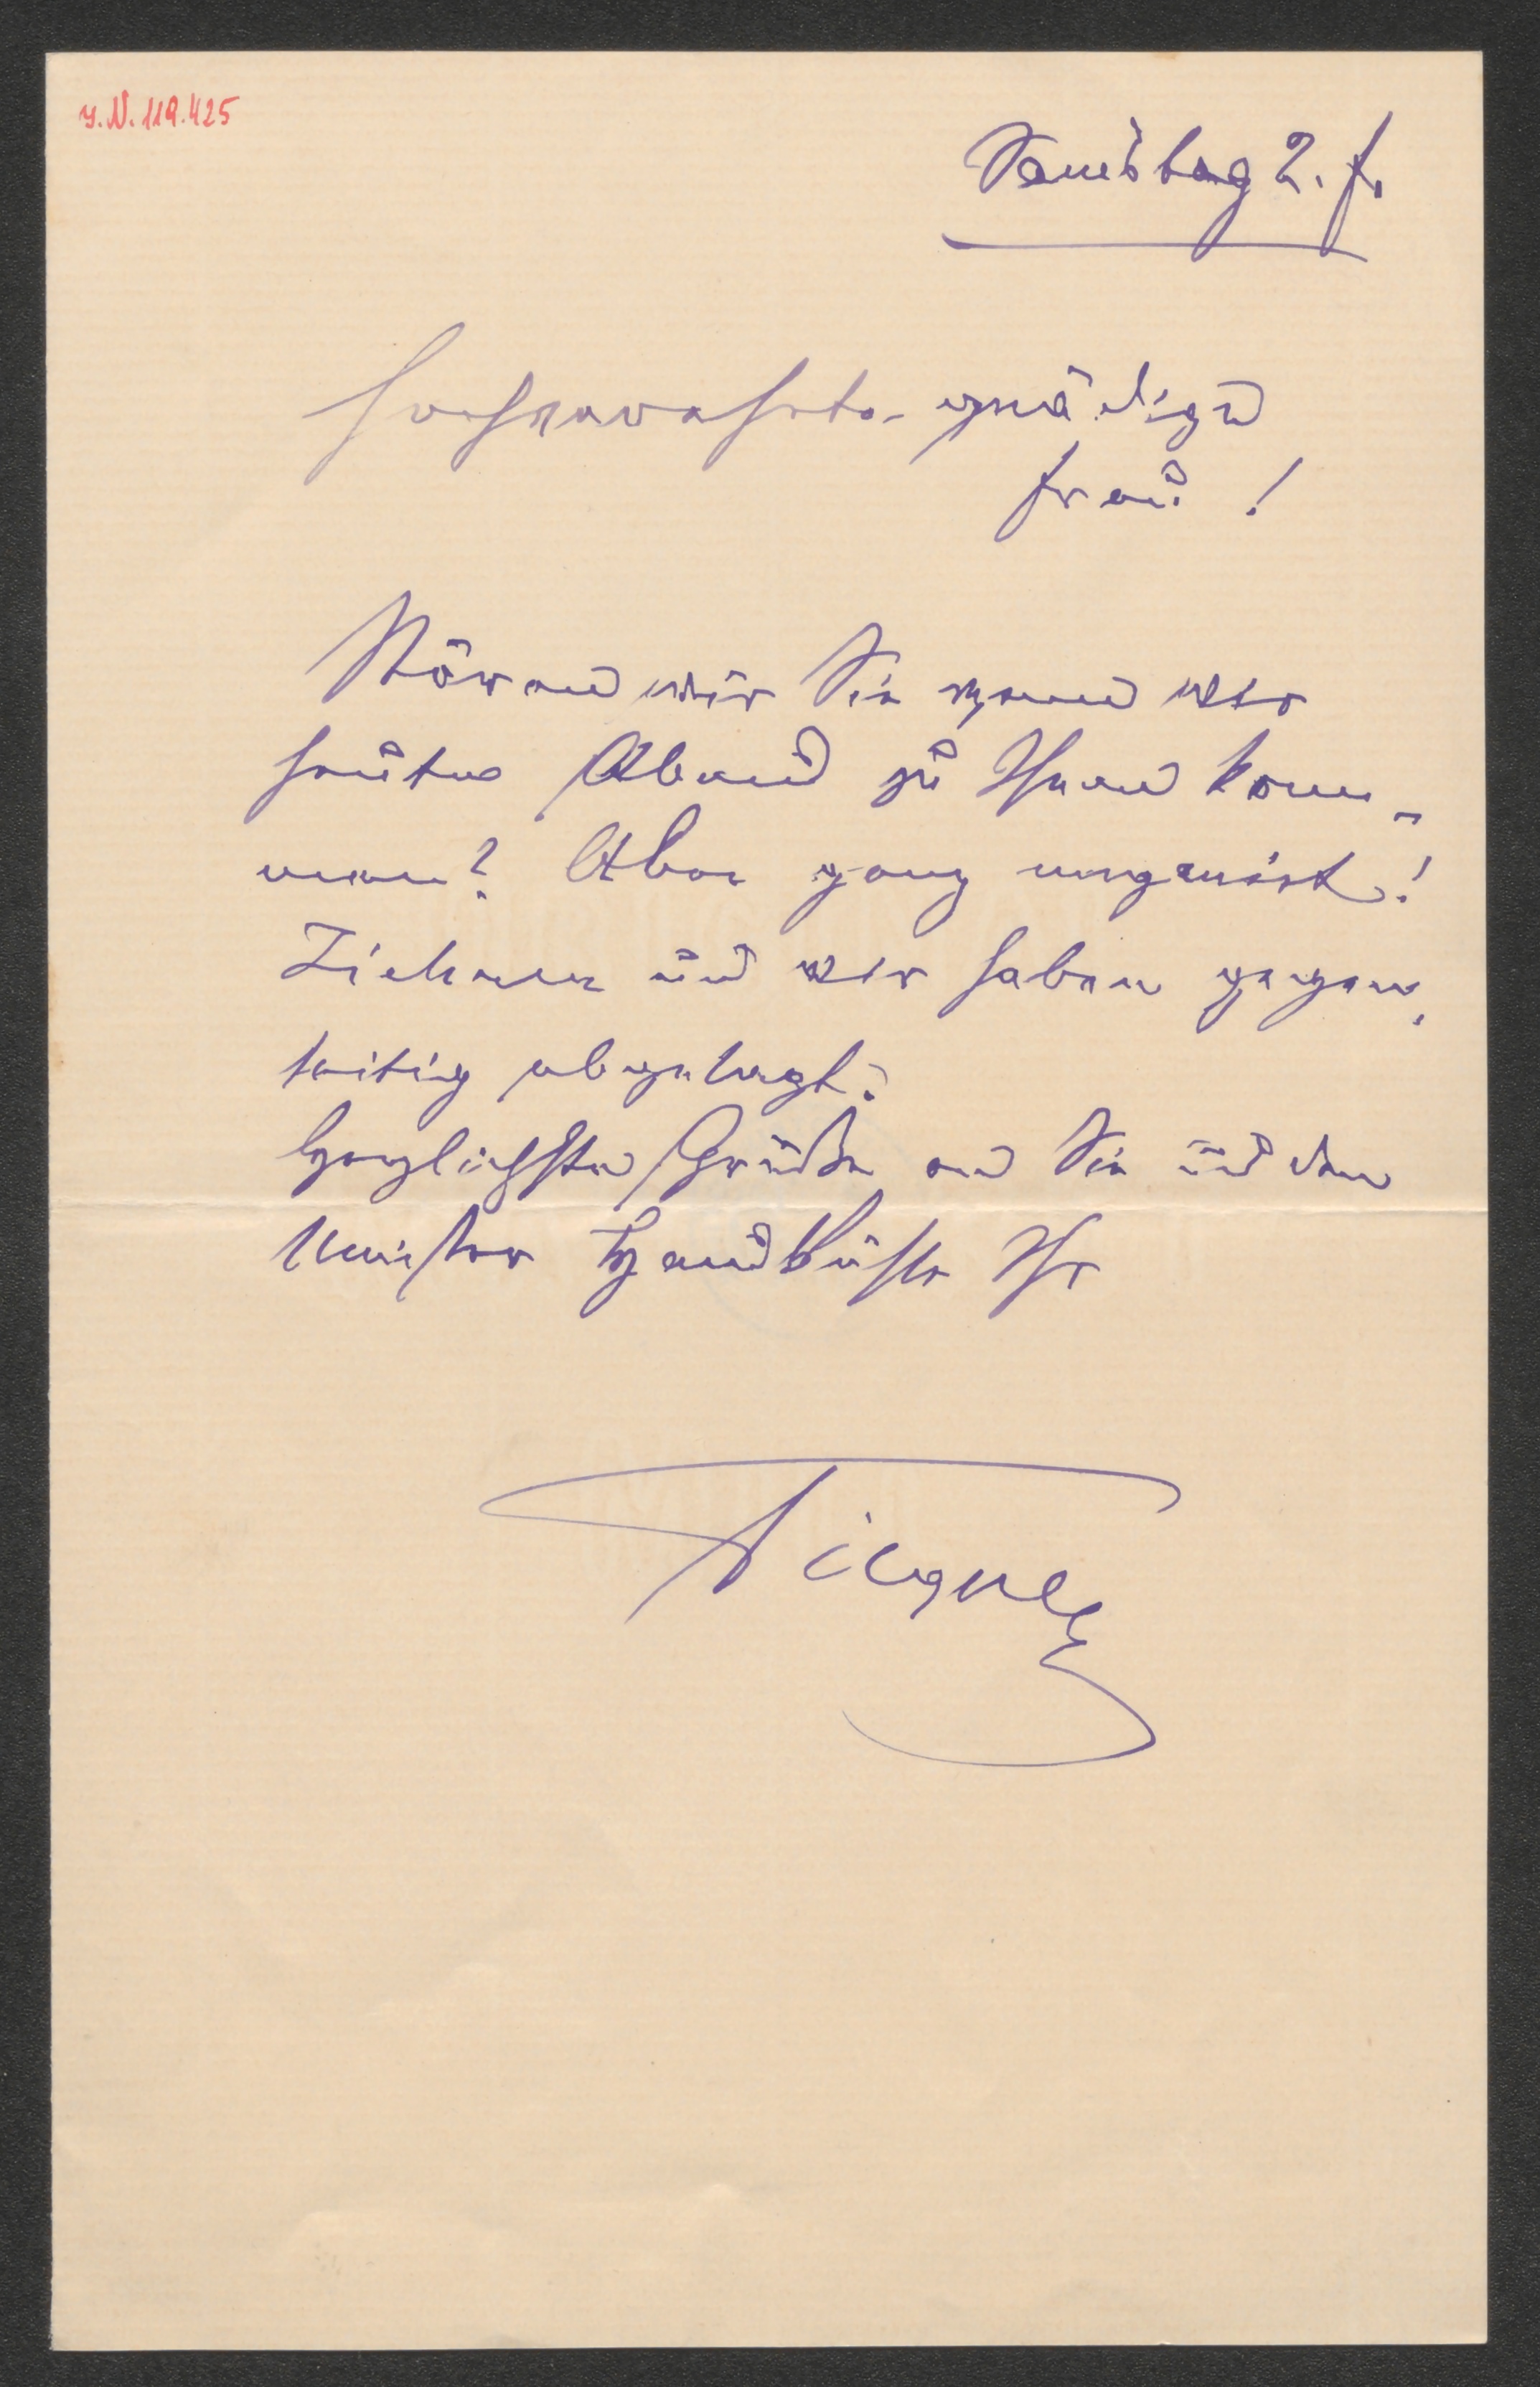 I.N. 119.425
Samstag 2. f.
Hochverehrte gnädige
Frau!
Stören wir Sie wenn wir
heute Abend zu Ihnen kom-
men? Aber ganz ungenirt!
und wir haben gegen-
seitig abgesagt.
Herzlichste Grüße an Sie und den
Meister Handküsse Ihr
Tilgner